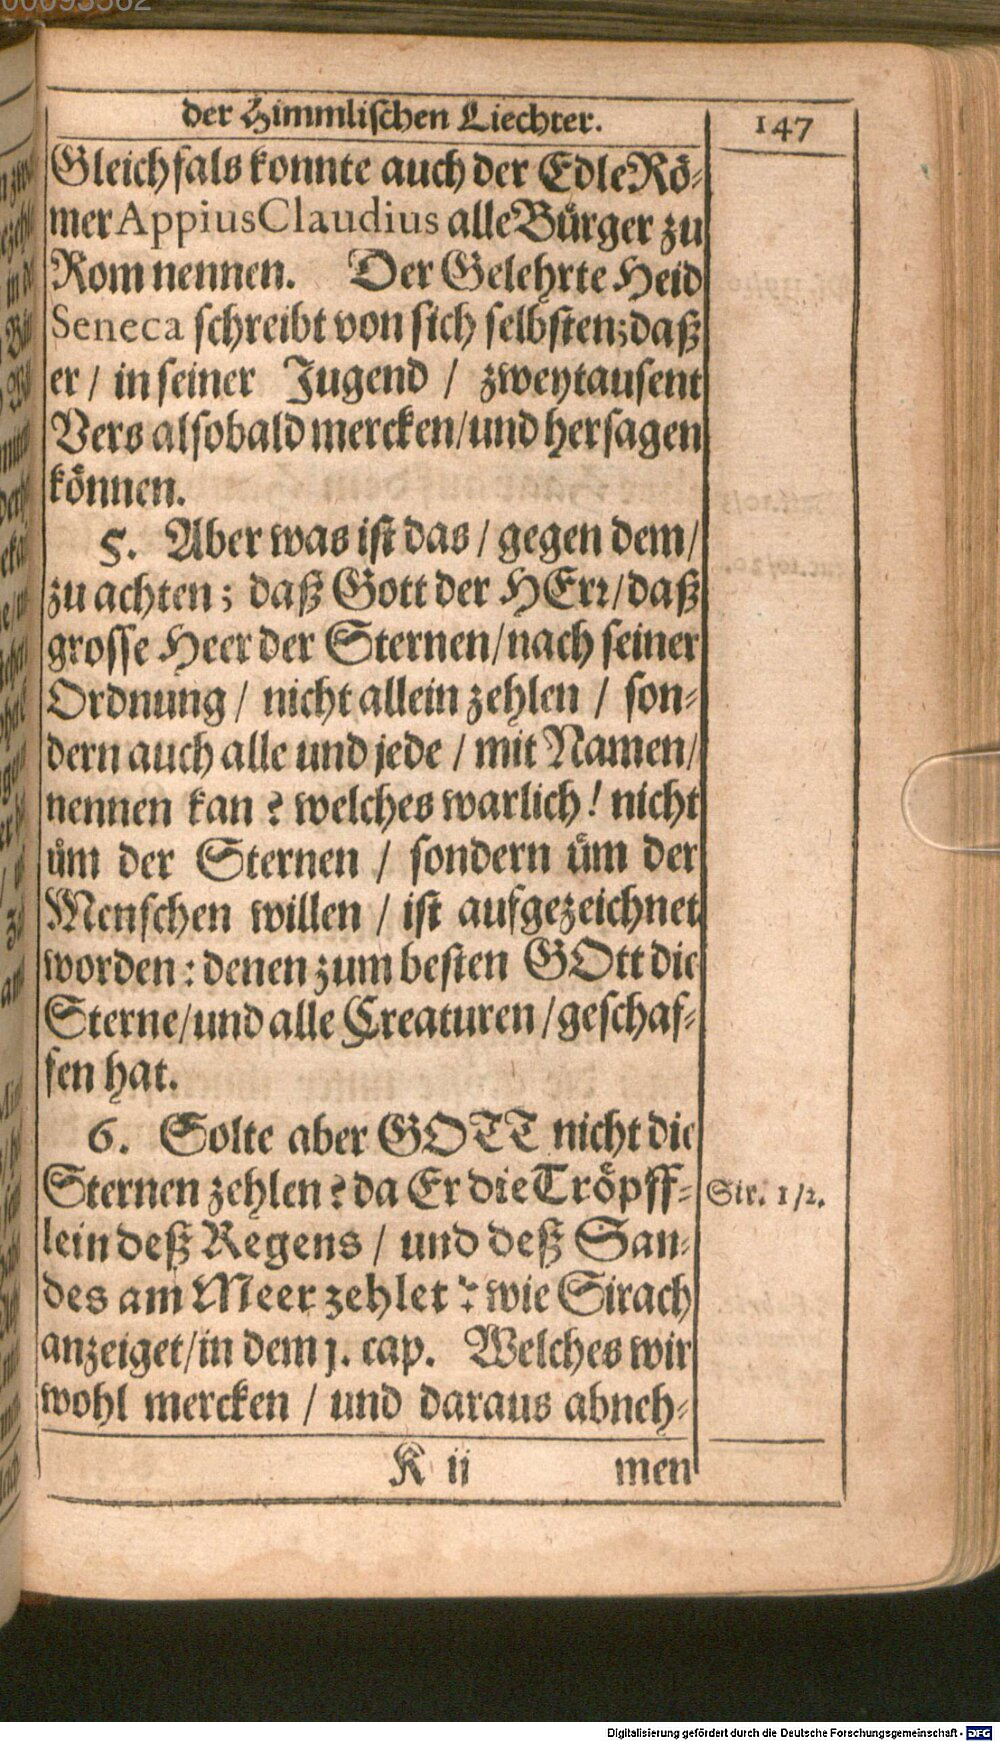 00093562
der Himmlischen Liechter.
147
Gleichfals konnte auch der Edle Rö⸗
mer Appius Claudius alle Bürger zu
Rom nennen. Der Gelehrte Heid
Seneca schreibt von sich selbsten; daß
er / in seiner Jugend / zweytausent
Vers alsobald mercken / und hersagen
können.
5. Aber was ist das / gegen dem /
zu achten; daß Gott der HErr / daß
grosse Heer der Sternen / nach seiner
Ordnung / nicht allein zehlen / son⸗
dern auch alle und jede / mit Namen /
nennen kan? welches warlich! nicht
üm der Sternen / sondern üm der
Menschen willen / ist aufgezeichnet
worden: denen zum besten GOtt die
Sterne / und alle Creaturen / geschaf⸗
fen hat.
6. Solte aber GOTT nicht die
Sternen zehlen? da Er die Tröpff⸗
Sir. 1/2.
lein deß Regens / und deß San⸗
des am Meer zehlet? wie Sirach
anzeiget / in dem j. cap. Welches wir
wohl mercken / und daraus abneh⸗
K ii
men
Digitalisierung gefördert durch die Deutsche Forschungsgemeinschaft - DFG